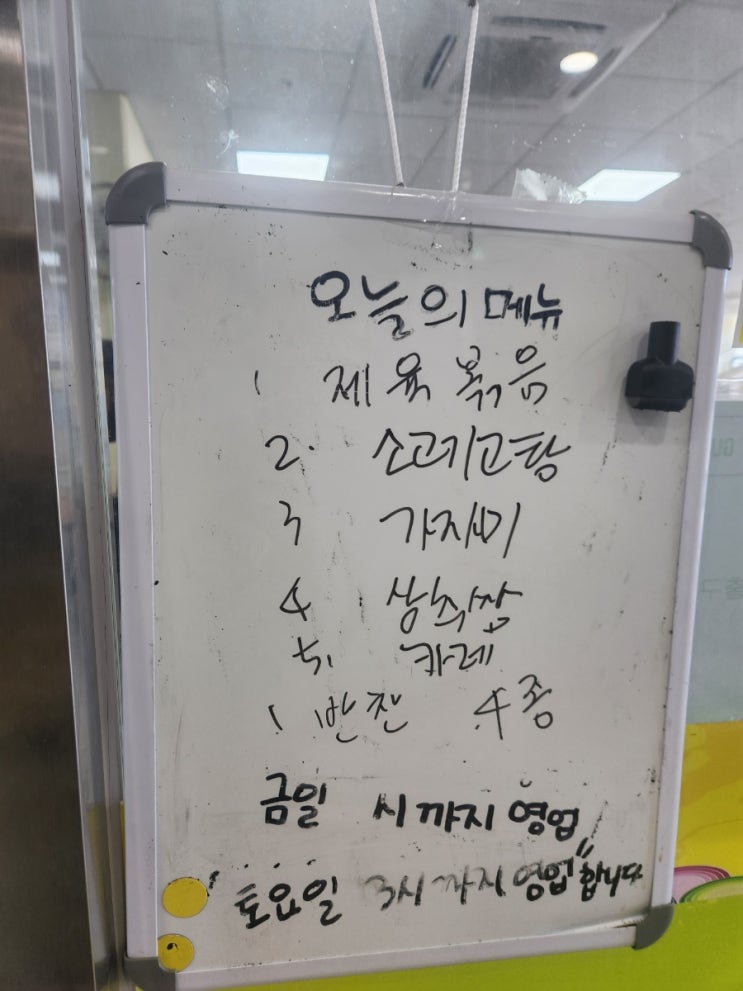 오늘의 메뉴
1 제육볶음
2. 소고기고탕
3 가자미
4 상추쌈
5. 카레
1 반찬 4종
금일 시까지 영업
토요일 3시까지 영업"합니다